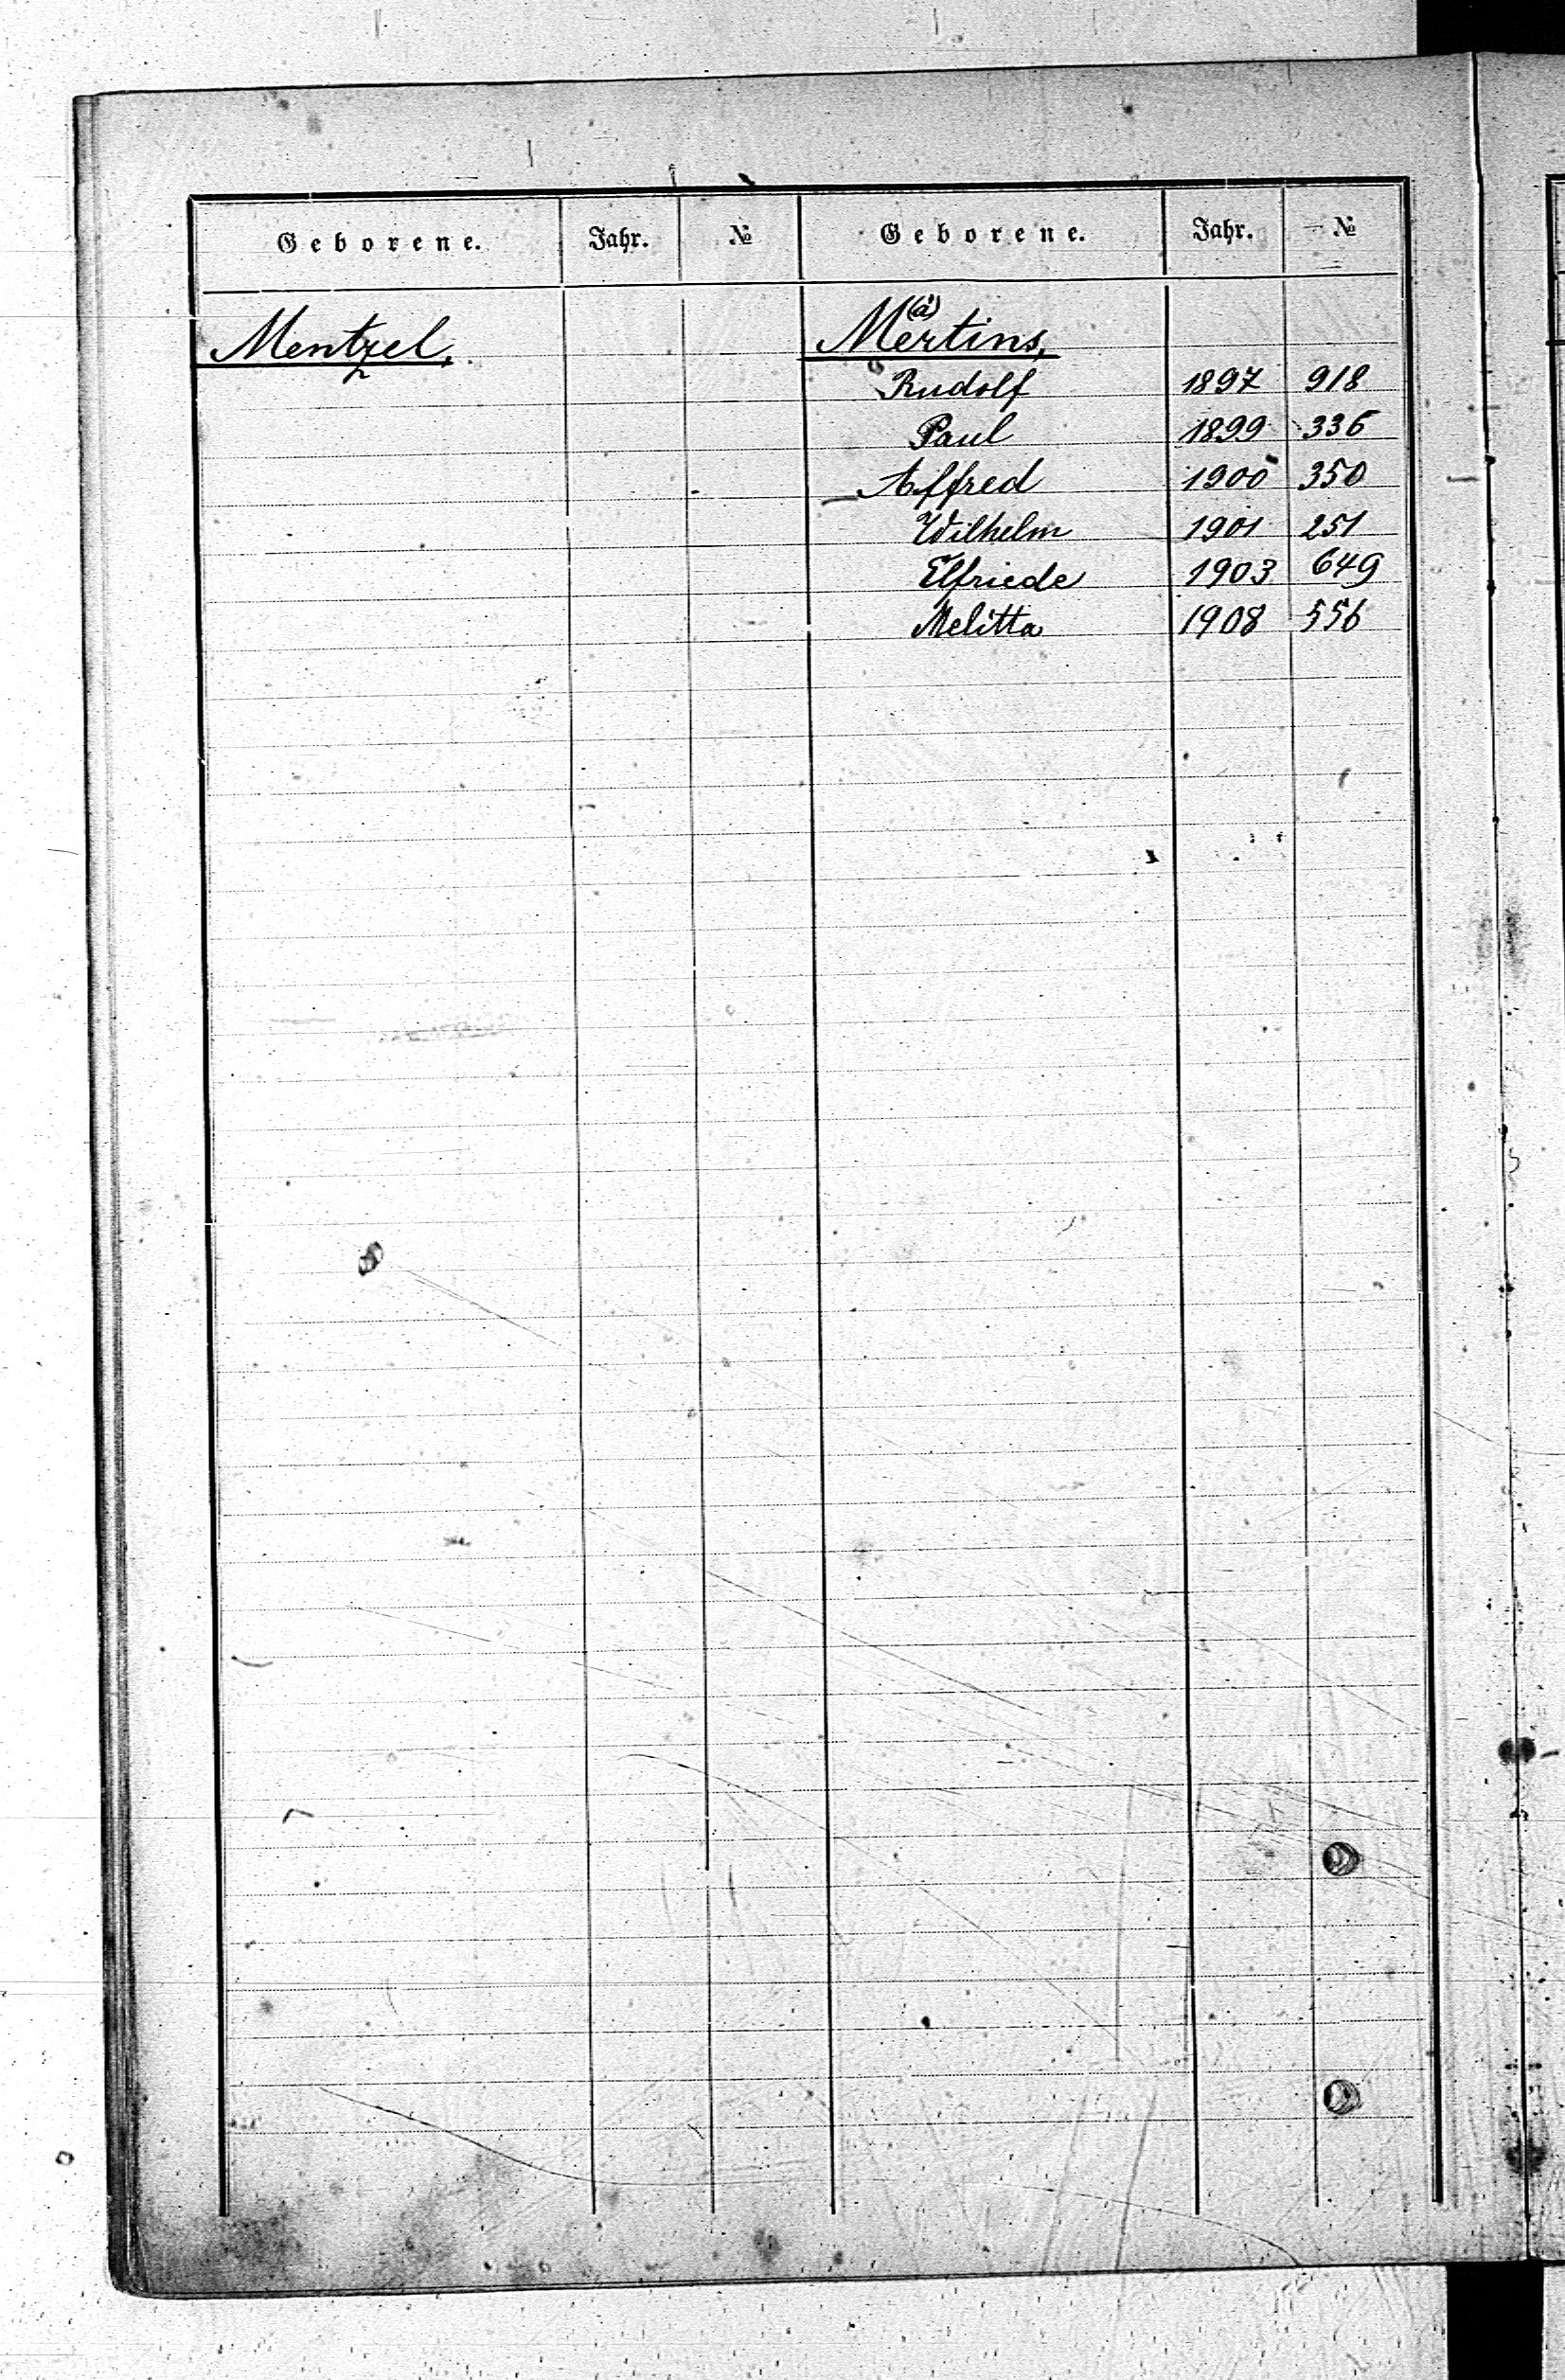 Geborene. Jahr. № Geborene. Jahr. №
Mentzel,
(ä)
Mertins,
Rudolf 1897 918
Paul 1899 336
Alfred 1900 350
Wilhelm 1901 251
Elfriede 1903 649
Melitta 1908 556